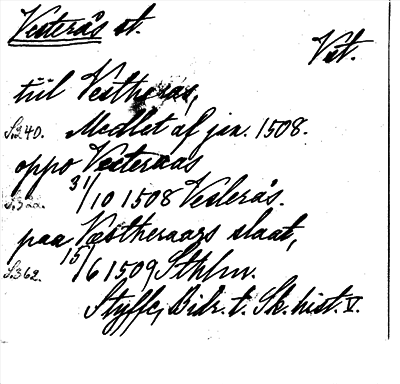 Vesterås st.
Vst.
tiil Vestheras,
S. 340. Medlet af jan. 1508.
oppo Vesteraas
S. 322. 31/10 1508 Vesterås.
paa Væstheraars slaat,
S. 362. 15/6 1509 Sthlm.
Styffe, Bidr. t. Sk. hist. V.